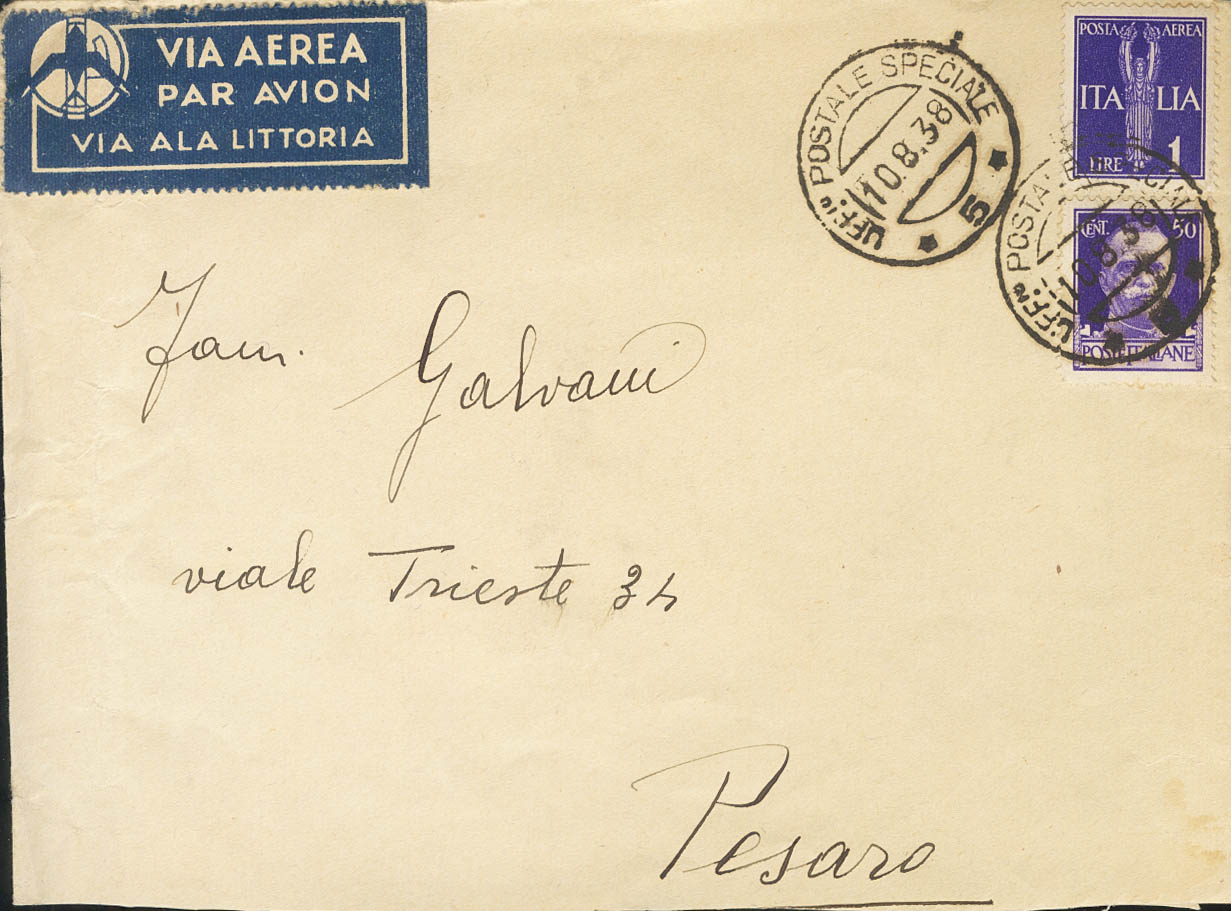 VIA AEREA
PAR AVION
VIA ALA LITTORIA
UFFIO POSTALE SPECIALE
10.8.38
5
POSTA AEREA
ITALIA
LIRE 1
CENT. 50
POSTE ITALIANE
UFFIO POSTALE SPECIALE
10.8.38
Fam. Galvani
viale Trieste 34
Pesaro